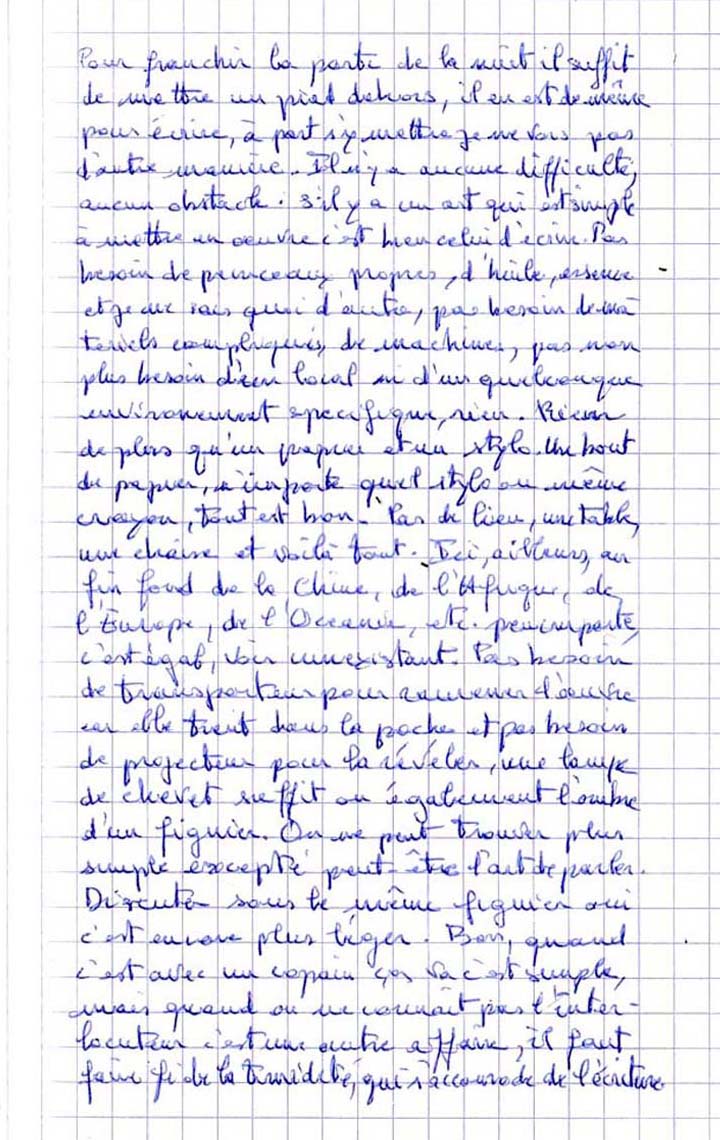 Pour franchir la porte de la nuit il suffit
de mettre un pied dehors, il en est de même
pour écrire, à part s'y mettre je ne vois pas
d'autre manière. Il n'y a aucune difficulté,
aucun obstacle. S'il y a un art qui est simple
à mettre en oeuvre c'est bien celui d'écrire. Pas
besoin de pinceaux propres, d'huile, essence
et je ne sais quoi d'autre, pas besoin de ma
tériels compliqués, de machines, pas non
plus besoin d'un local ni d'un quelconque
environnement spécifique, rien. Rien
de plus qu'un papier et un stylo. Un bout
de papier, n'importe quel stylo ou même
crayon, tout est bon. Pas de lieu, une table,
une chaise et voilà tout. Ici, ailleurs, au
fin fond de la Chine, de l'Afrique, de
l'Europe, de l'Oceanie, etc. peu importe,
c'est égal, voir inexistant. Pas besoin
de transporteur pour ramener l'oeuvre
car elle tient dans la poche et pas besoin
de projecteur pour la révéler, une lampe
de chevet suffit ou également l'ombre
d'un figuier. On ne peut trouver plus
simple excepté peut-être l'art de parler.
Discuter sous le même figuier oui
c'est encore plus léger. Bon, quand
c'est avec un copain ça va c'est simple,
mais quand on ne connaît pas l'inter-
locuteur c'est une autre affaire, il faut
faire fi de la timidité, qui s'accomode de l'écriture